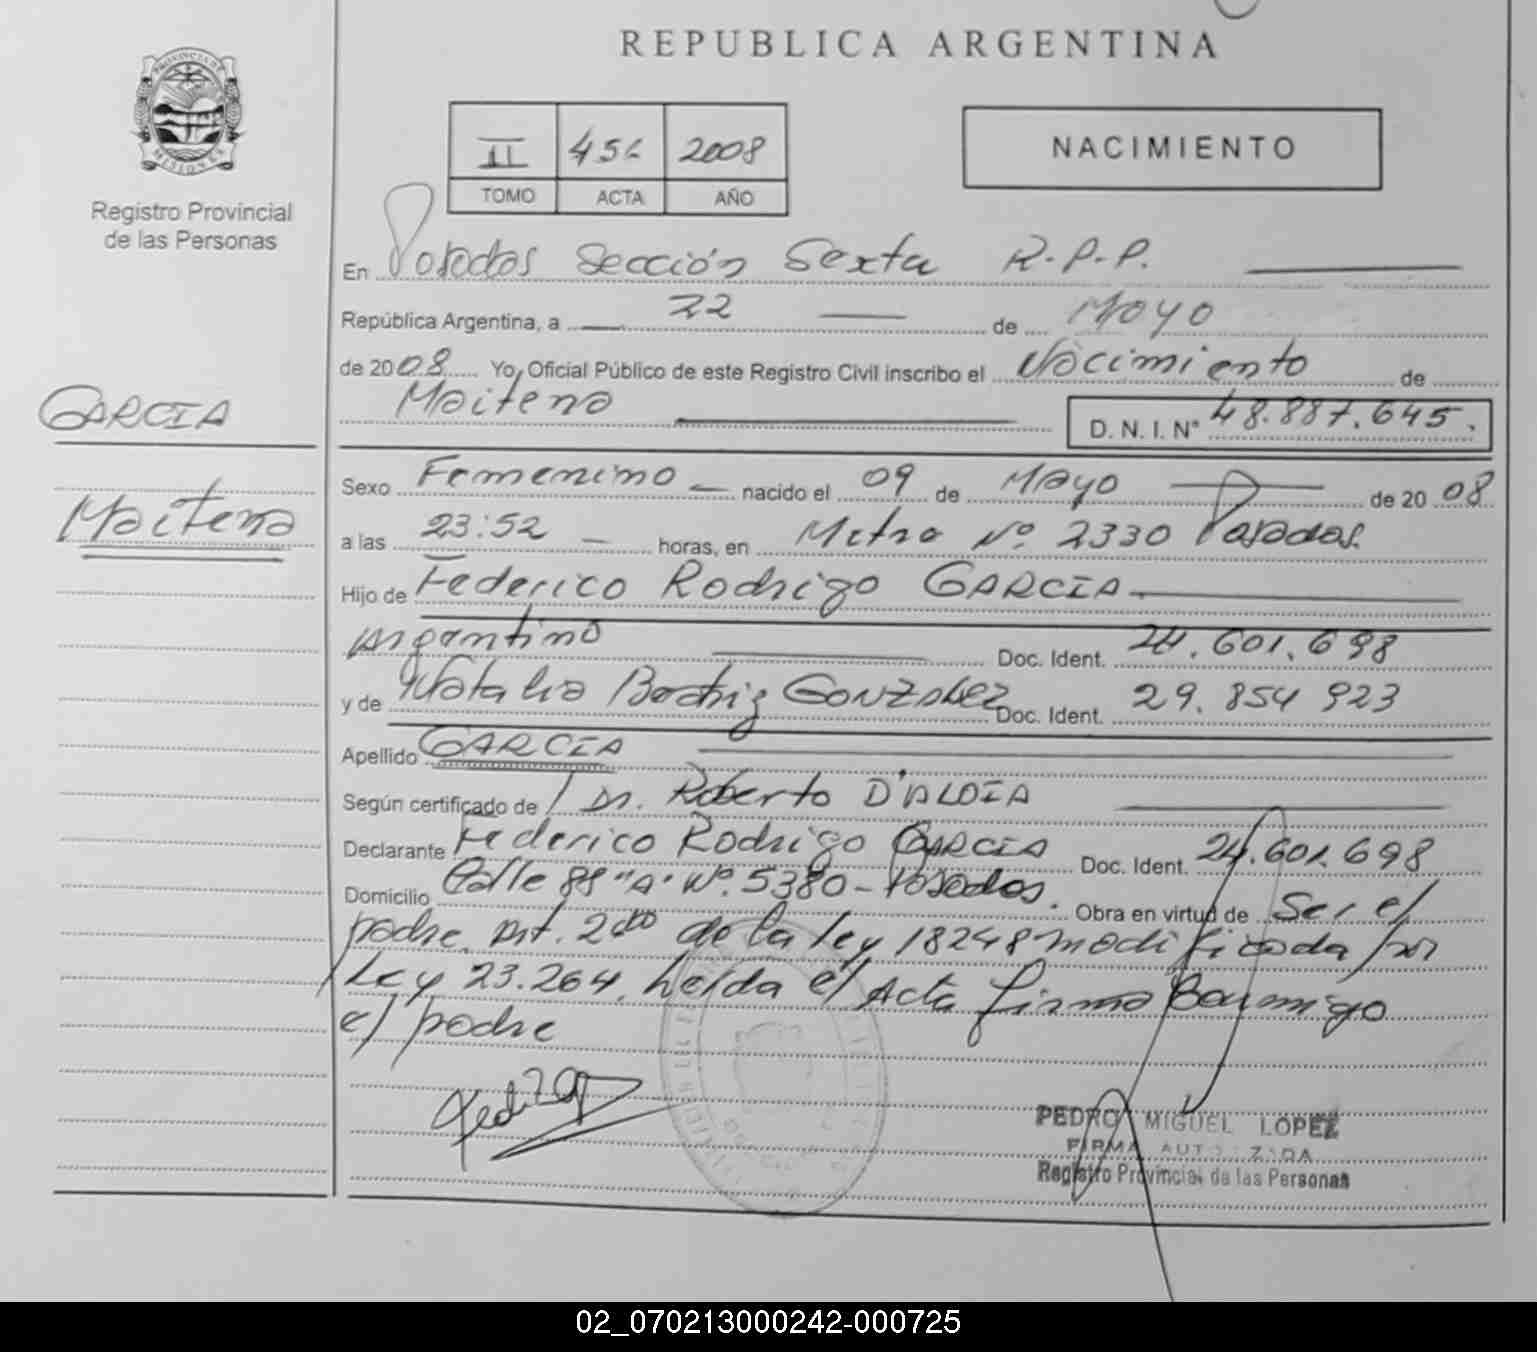 REPUBLICA ARGENTINA
PROVINCIA DE
MISIONES
Registro Provincial
de las Personas
II 456 2008
TOMO ACTA AÑO
NACIMIENTO
En Posadas Sección Sexta R.P.P.
República Argentina, a 22 de Mayo
de 2008 Yo, Oficial Público de este Registro Civil inscribo el Nacimiento de
Maitena D. N. I. N° 48.887.645.
GARCIA
Maitena
Sexo Femenino nacido el 09 de Mayo de 2008
a las 23:52 horas, en Mitre Nº 2330 Posadas.
Hijo de Federico Rodrigo GARCIA
Argentino Doc. Ident. 24.601.698
y de Natalia Beatriz GONZALEZ Doc. Ident. 29.854 923
Apellido GARCIA
Según certificado de Dr. Roberto D'ALOIA
Declarante Federico Rodrigo GARCIA Doc. Ident. 24.601.698
Domicilio Calle 88 "A" Nº 5380 - Posadas. Obra en virtud de Ser el
padre. Art. 2do de la ley 18248 modificada por
Ley 23.264. Leída el Acta firma Conmigo
el padre
PEDRO MIGUEL LOPEZ
FIRMA AUTORIZADA
Registro Provincial de las Personas
02_070213000242-000725